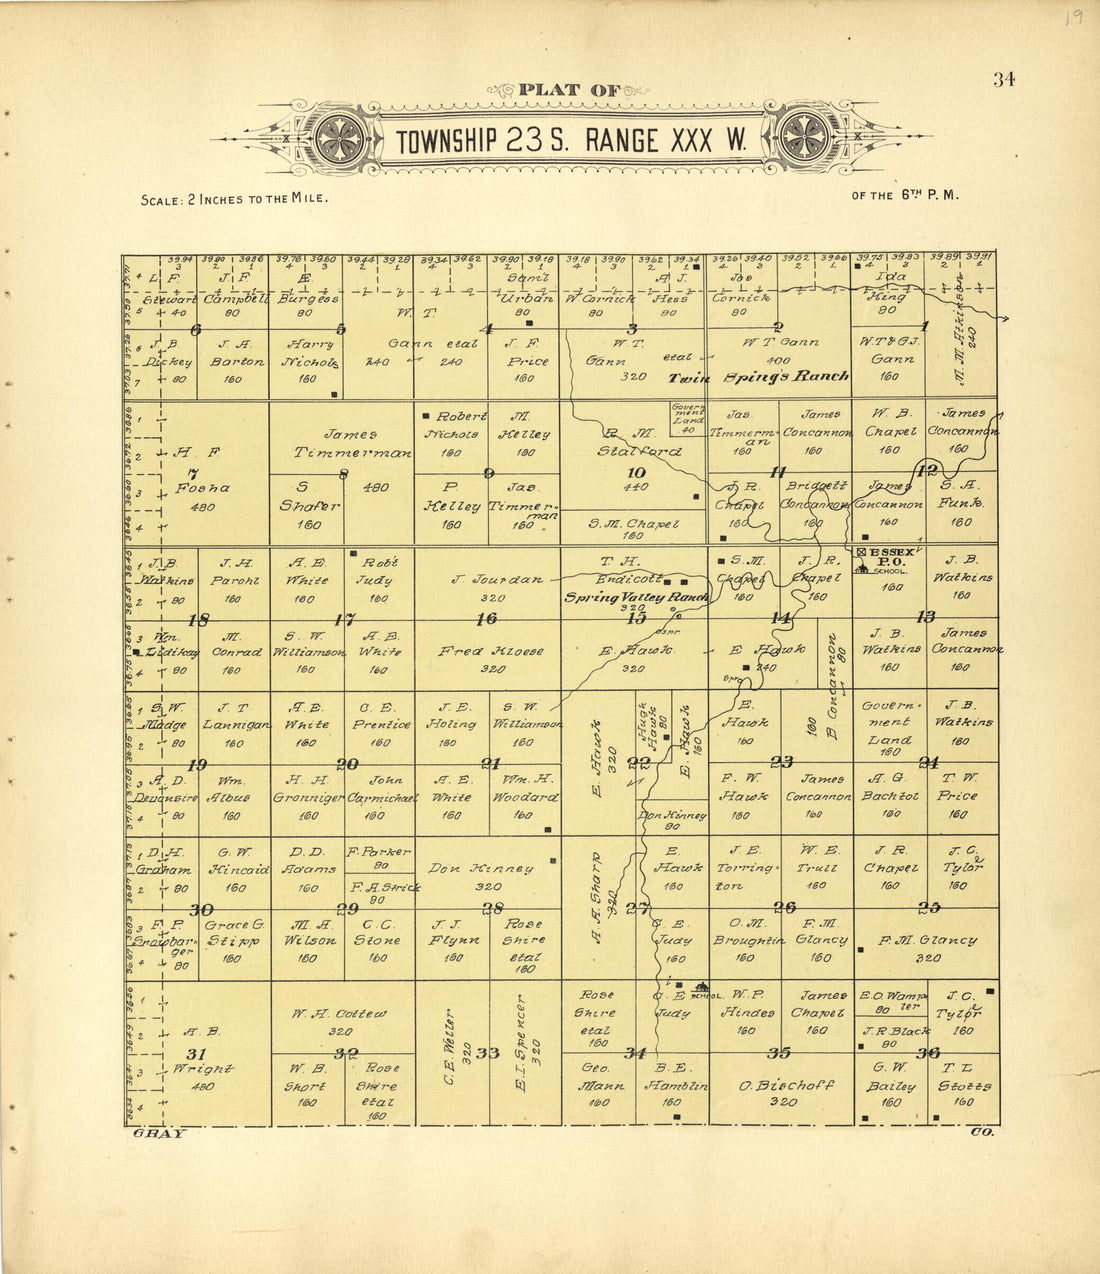 19
34
PLAT OF
TOWNSHIP 23 S. RANGE XXX W.
SCALE: 2 INCHES TO THE MILE.
OF THE 6TH P. M.
39.94 39.90 39.86 39.76 39.60 39.44 39.28 39.34 39.62 39.90 39.18 39.18 39.90 39.62 39.34 39.26 39.40 39.52 39.66 39.75 39.83 39.89 39.91
L. F. Stewart 40
J. F. Campbell 80
E. Burgess 80
W. T. Gann etal 240 240
Sam'l Urban 80
W Cornick 80
A J. Hess 80
Jas Cornick 80
Ida King 80
M. M. Atkinson 240
6 5 4 3 2 1
J. B. Dickey 80
J. A. Barton 160
Harry Nichols 160
J. F. Price 160
W. T. Gann etal 320
W T Gann 400
Twin Springs Ranch
W.T & G.J. Gann 160
H. F Fosha 480
James Timmerman 480
Robert Nichols 160
M. Kelley 160
R. M. Stalford 440
Government Land 40
Jas. Timmerman 160
James Concannon 160
W. B. Chapel 160
James Concannon 160
7 8 9 10 11 12
S Shafer 160
P. Kelley 160
Jas. Timmerman 160
S. M. Chapel 160
J. R. Chapel 160
Bridgett Concannon 160
James Concannon 160
S. A. Funk 160
J. B. Watkins 80
J. H. Parohl 160
A. E. White 160
Rob't Judy 160
J. Jourdan 320
T. H. Endicott
Spring Valley Ranch
320
S. M. Chapel 160
J. R. Chapel 160
ESSEX P. O.
SCHOOL.
160
J. B. Watkins 160
18 17 16 15 14 13
Wm. Lidikay 80
M. Conrad 160
S. W. Williamson 160
A. E. White 160
Fred Kloese 320
Spr.
E. Hawk 320
E Hawk 240
Spr.
B. Concannon 80
160
J. B. Watkins 160
James Concannon 160
S. W. Madge 80
J. T Lannigan 160
A. E. White 160
C. E. Prentice 160
J. E. Holing 160
S. W. Williamson 160
E. Hawk 320
Hugh Hawk 80
E. Hawk 160
E. Hawk 160
Government Land 160
J. B. Watkins 160
19 20 21 22 23 24
A. D. Devonsire 80
Wm. Albus 160
H. H. Gronniger 160
John Carmichael 160
A. E. White 160
Wm. H. Woodard 160
Don Kinney 80
F. W. Hawk 160
James Concannon 160
A. G. Bachtol 160
T. W. Price 160
D. H. Graham 80
G. W. Kincaid 160
D. D. Adams 160
F. Parker 80
F. A. Strick 80
Don Kinney 320
A. A. Sharp 320
E. Hawk 160
J. E. Torrington
W. E. Trull 160
J. R. Chapel 160
J. C. Tylor 160
30 29 28 27 26 25
F. P. Snowbarger 80
Grace G. Stipp 160
M. A. Wilson 160
C. C. Stone 160
J. J. Flynn 160
Rose Shire etal 160
C. E. Judy 160
O. M. Broughtin 160
F. M. Glancy 160
F. M. Glancy 320
A. B. Wright 480
W. H. Cottew 320
C. E. Weller 320
E. I. Spencer 320
Rose Shire etal 160
C. E Judy
SCHOOL.
W. P. Hindes 160
James Chapel 160
E. O. Wampler 80
J. R. Black 80
J. C. Tylor 160
31 32 33 34 35 36
W. B. Short 160
Rose Shire etal 160
Geo. Mann 160
B. E. Hamblin 160
O. Bischoff 320
G. W. Bailey 160
T. L Stotts 160
GRAY
CO.